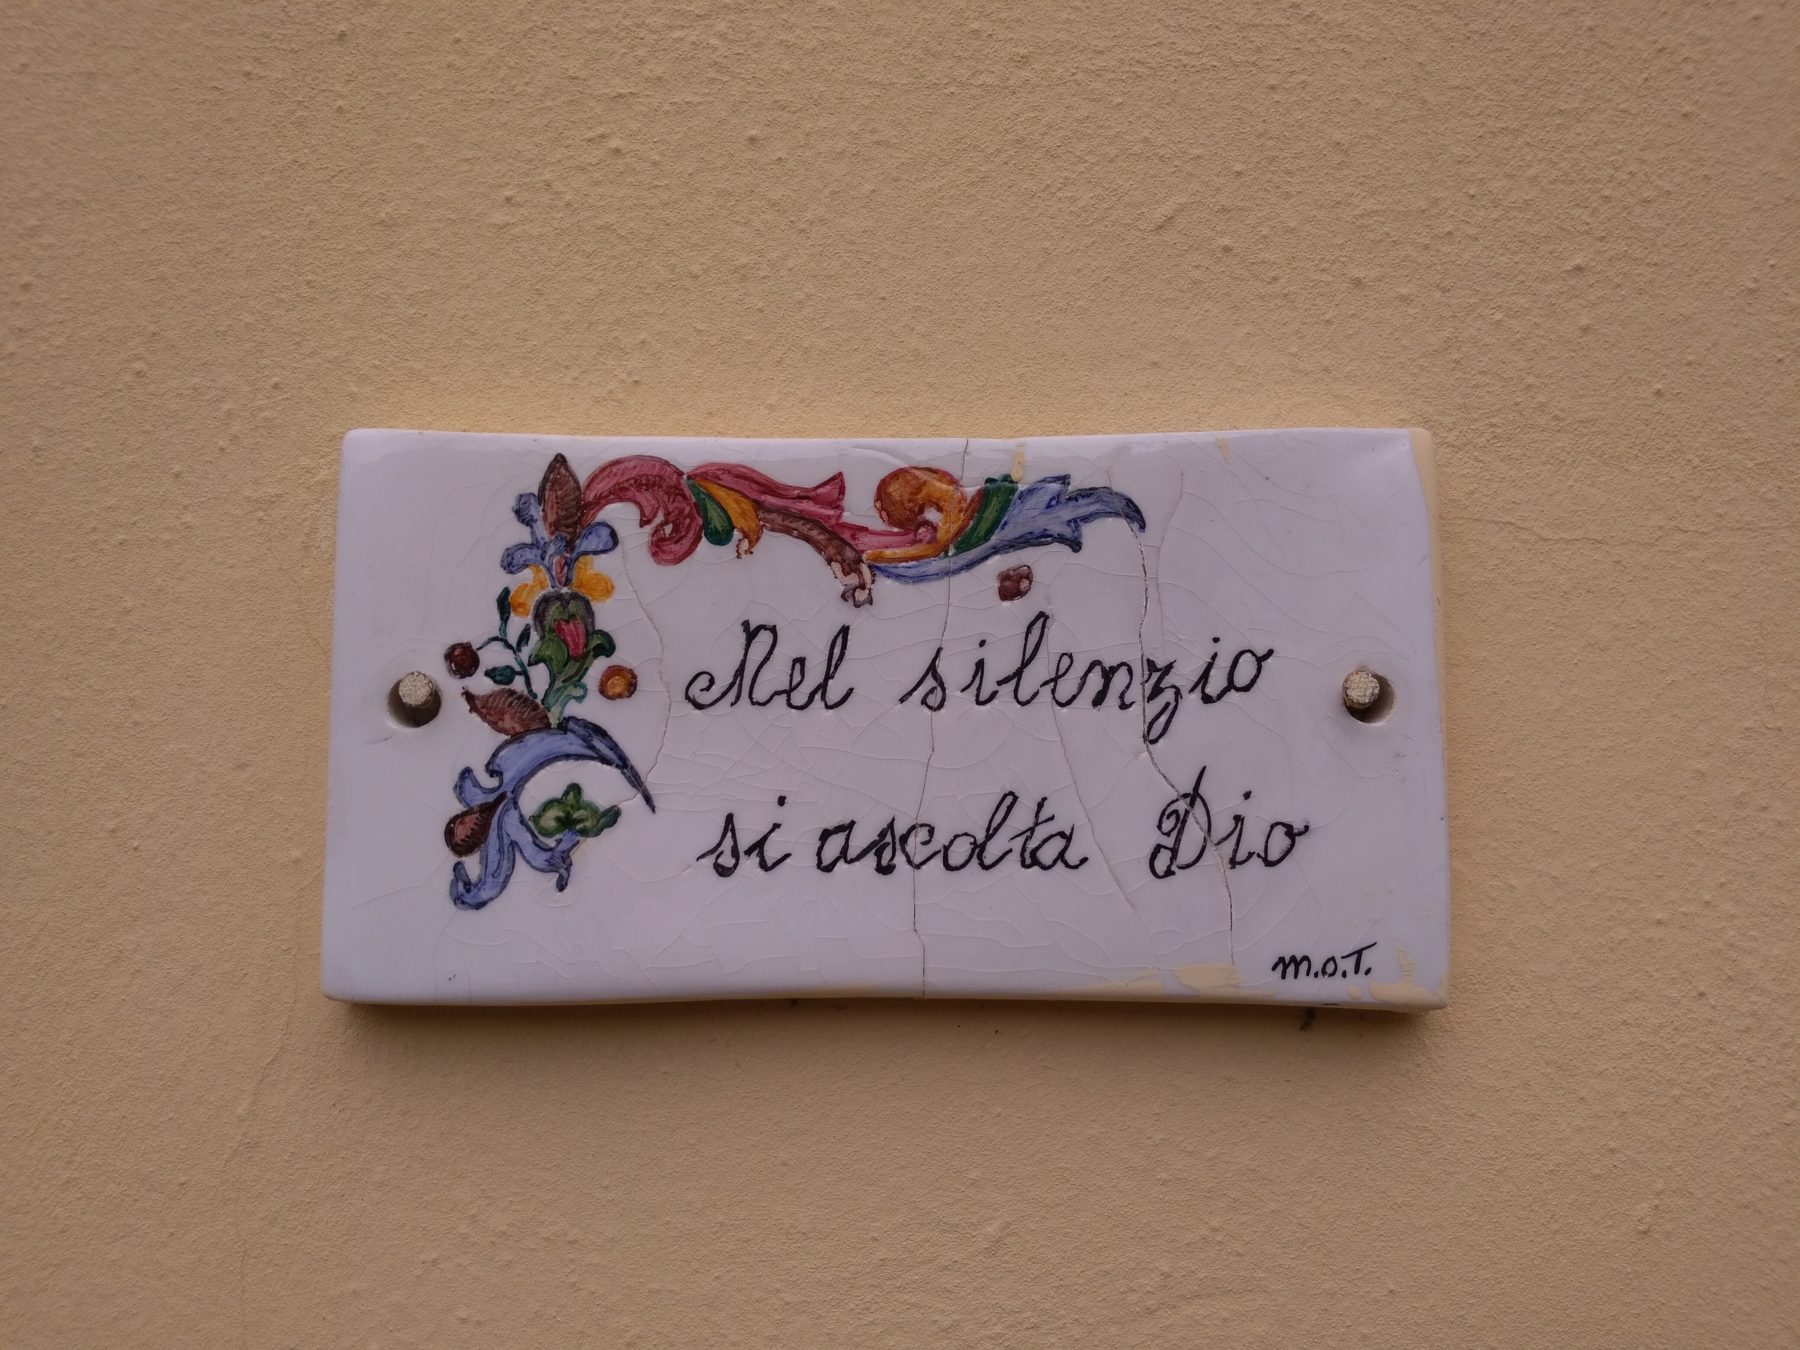 Nel silenzio
si ascolta Dio
M.O.T.